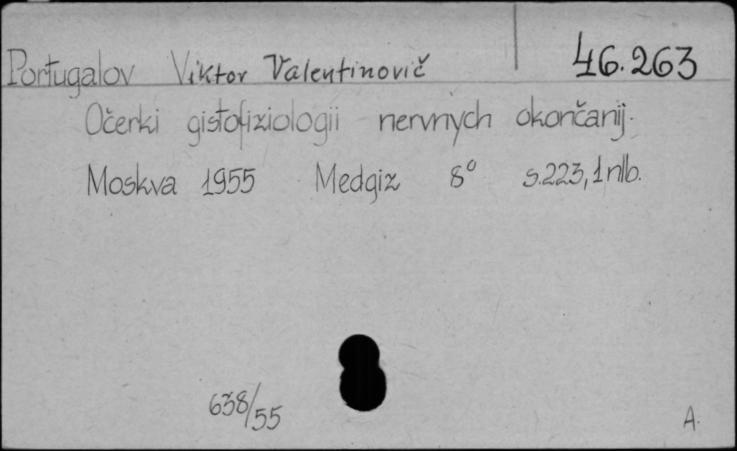 Portugalov Viktor Valentinovič 46.263
Očerki gistofiziologii nervnych okončanij.
Moskva 1955 Medgiz 8° s.223, 1 nlb.
638/55
A.